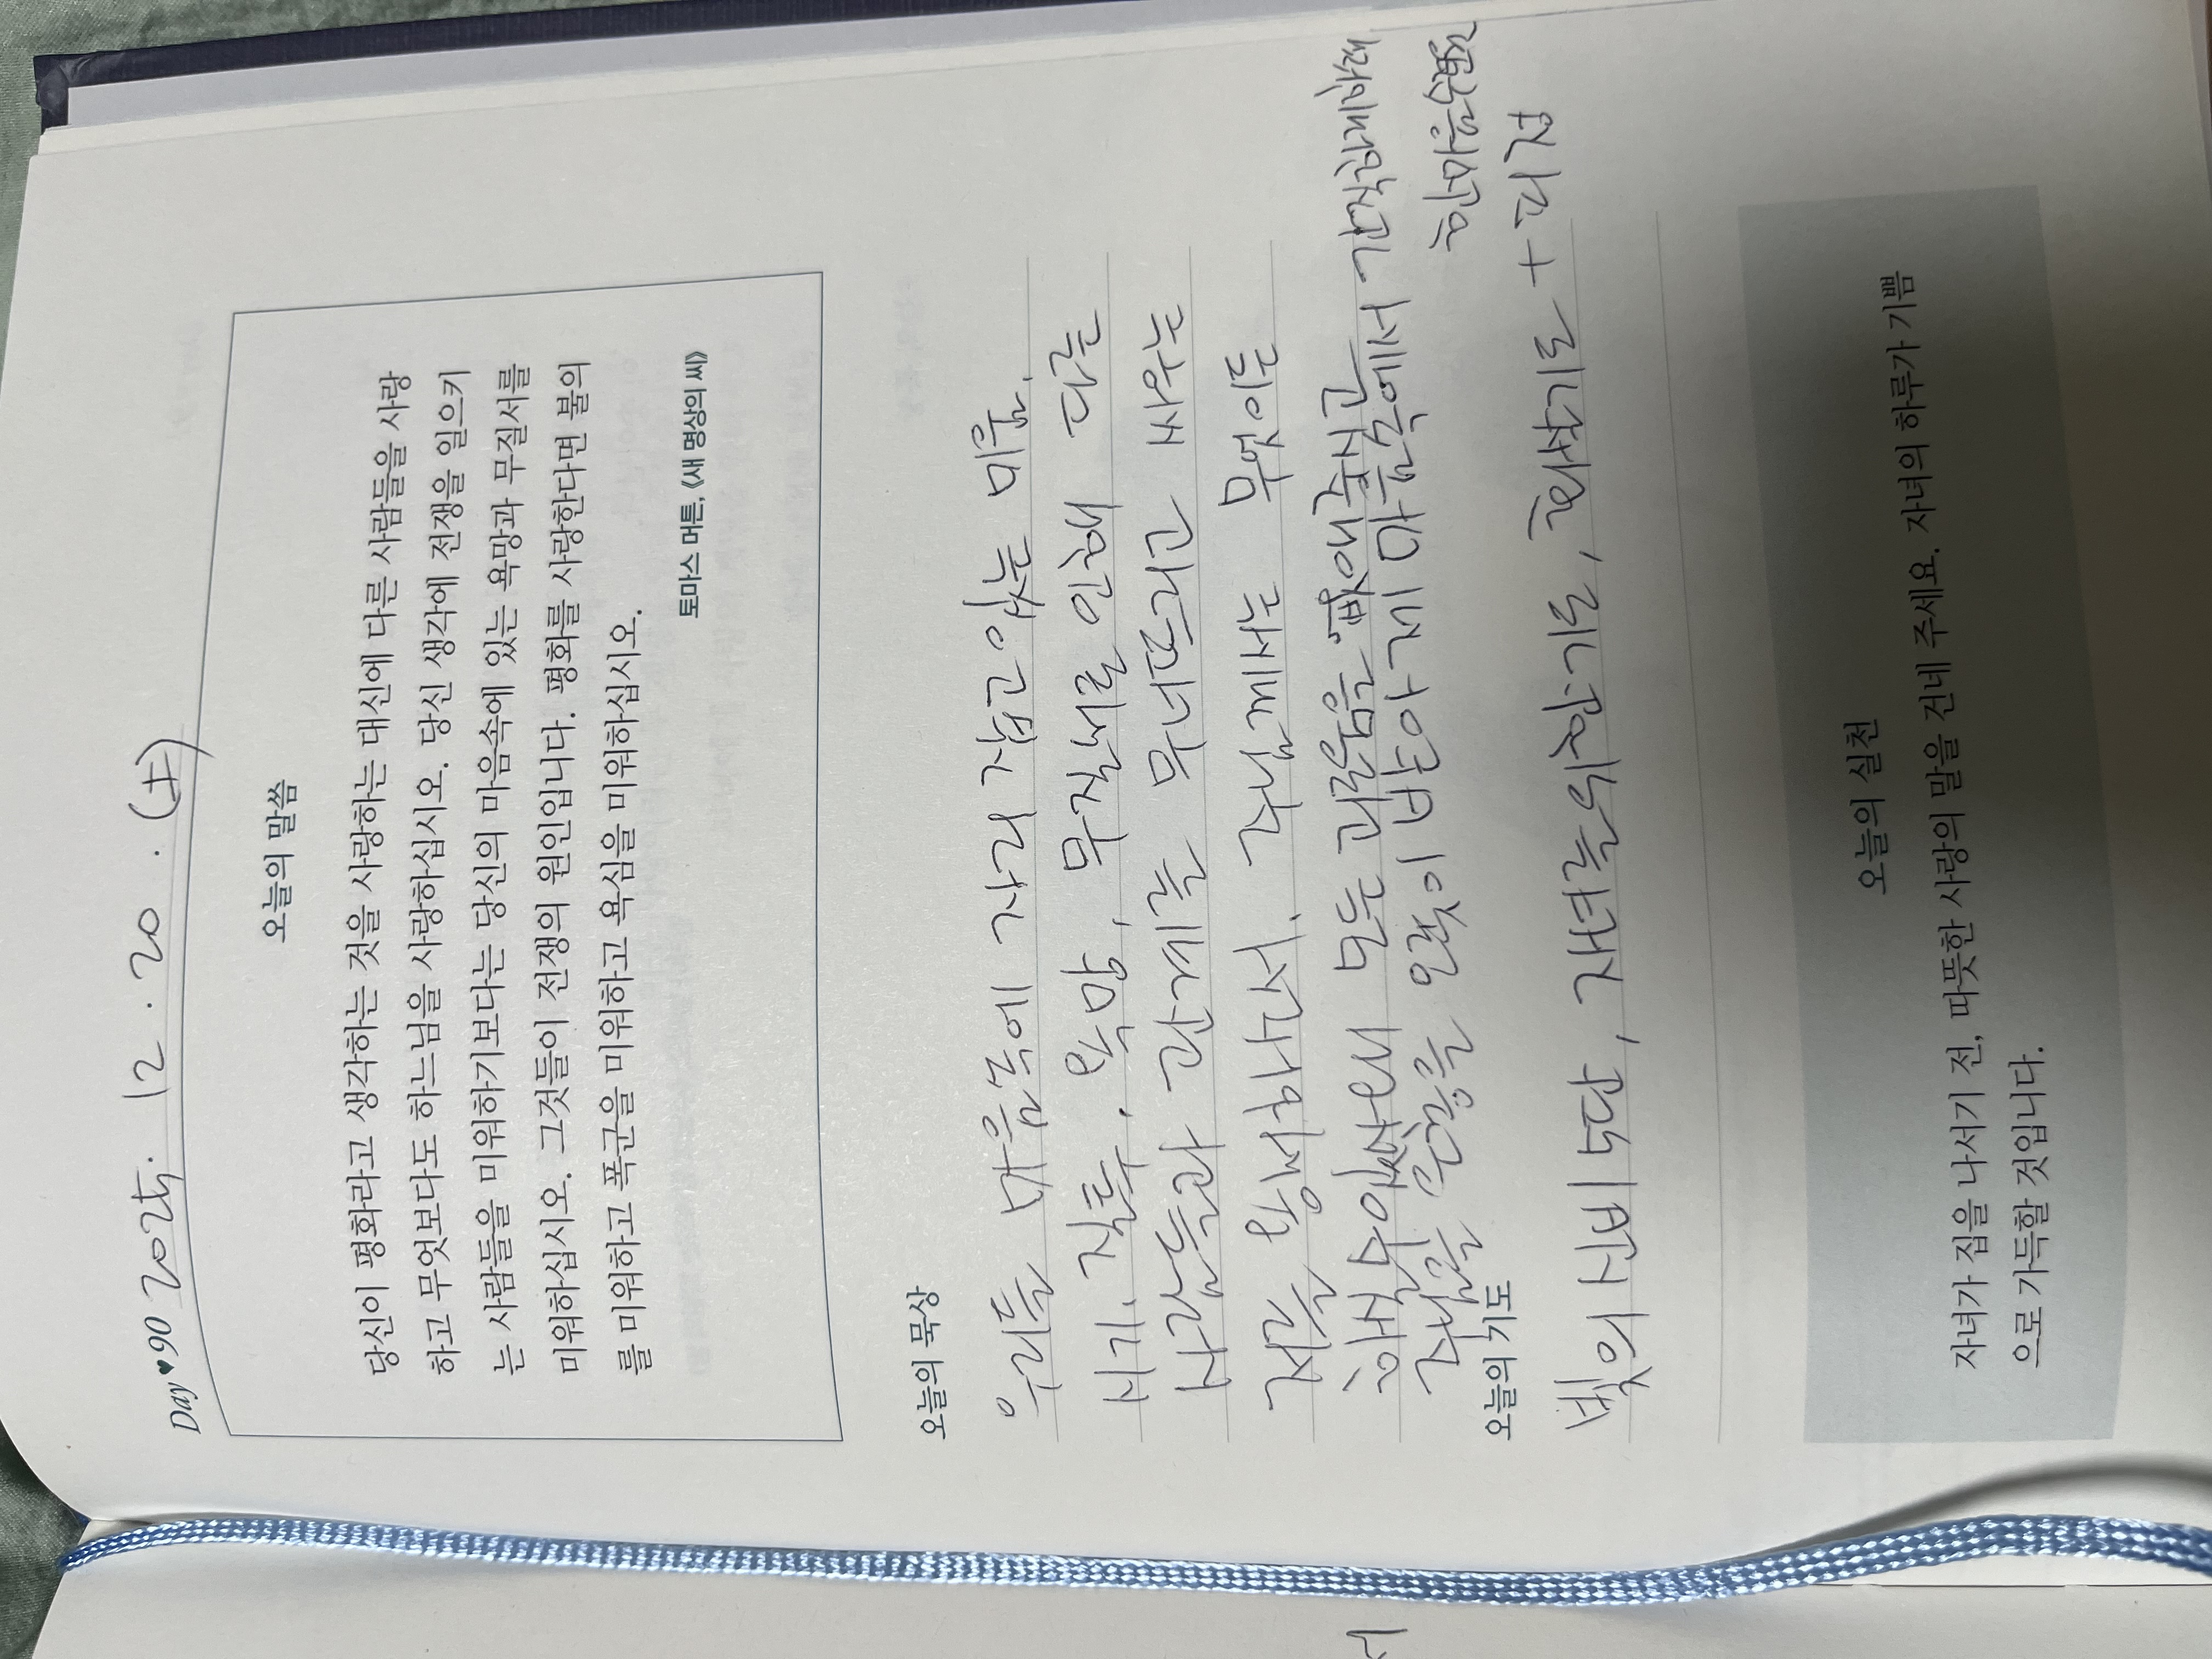 Day♥90 2025. 12. 20. (土)
오늘의 말씀
당신이 평화라고 생각하는 것을 사랑하는 대신에 다른 사람들을 사랑
하고 무엇보다도 하느님을 사랑하십시오. 당신 생각에 전쟁을 일으키
는 사람들을 미워하기보다는 당신의 마음속에 있는 욕망과 무질서를
미워하십시오. 그것들이 전쟁의 원인입니다. 평화를 사랑한다면 불의
를 미워하고 폭군을 미워하고 욕심을 미워하십시오.
토마스 머튼, 《새 명상의 씨》
오늘의 묵상
우리들 마음속에 자리 잡고 있는 미움.
시기. 질투. 욕망, 무질서로 인해 다른
사람들과 관계를 무너뜨리고 싸우는
저를 용서하소서. 주님께서는 무엇이든
하실 수 있사오니 모든 괴로움을 없애주시고
주님을 은총을 없이 받아 제 마음속에서 간절하게
오늘의 기도
빛의 신비 5단, 자녀를위한기도, 화살기도 +
오늘의 실천
자녀가 집을 나서기 전, 따뜻한 사랑의 말을 건네 주세요. 자녀의 하루가 기쁨
으로 가득할 것입니다.
서